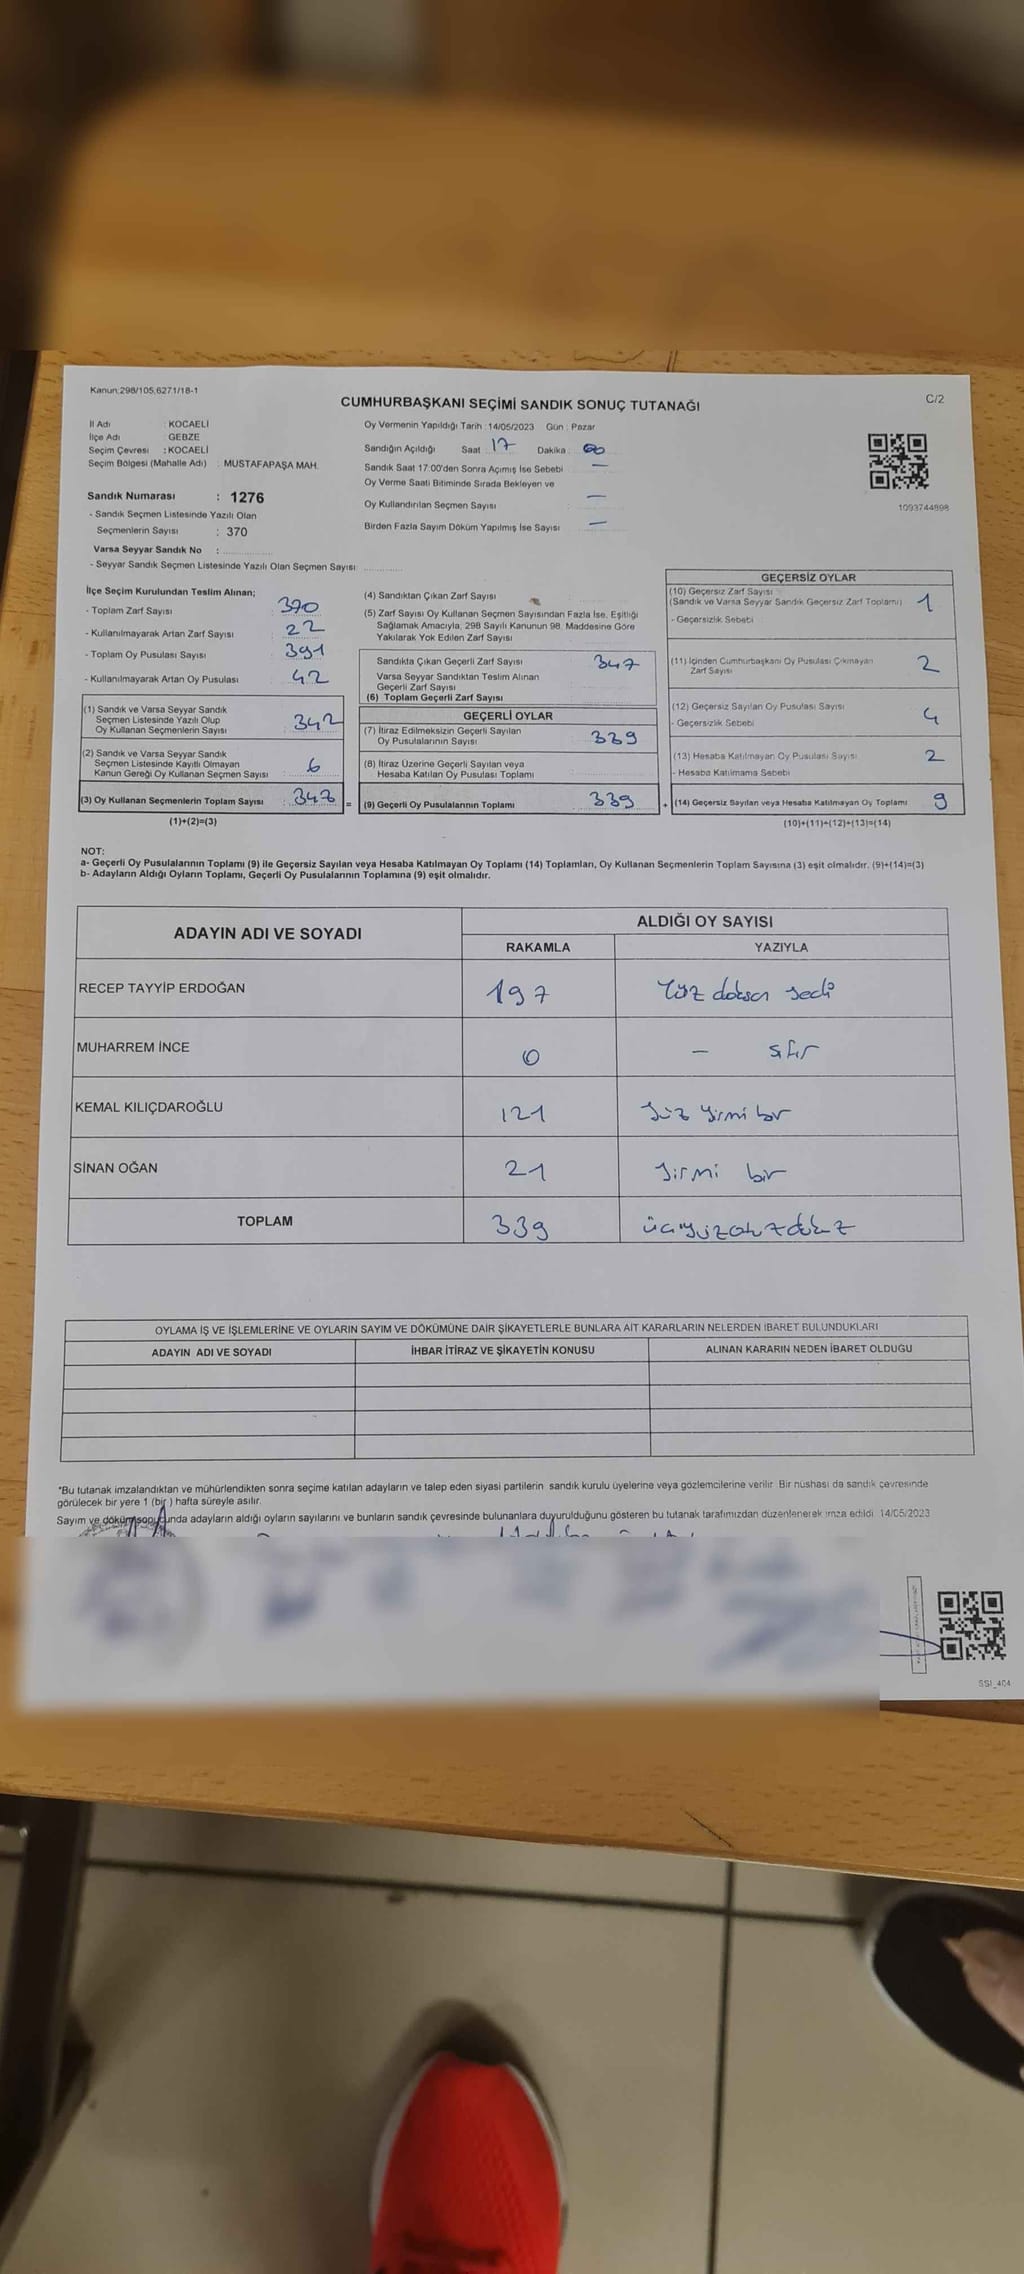 Kanun:298/105,6271/18-1
C/2
CUMHURBAŞKANI SEÇİMİ SANDIK SONUÇ TUTANAĞI
İl Adı : KOCAELİ
İlçe Adı : GEBZE
Seçim Çevresi : KOCAELİ
Seçim Bölgesi (Mahalle Adı) : MUSTAFAPAŞA MAH.
Sandık Numarası : 1276
- Sandık Seçmen Listesinde Yazılı Olan
Seçmenlerin Sayısı : 370
Varsa Seyyar Sandık No :
- Seyyar Sandık Seçmen Listesinde Yazılı Olan Seçmen Sayısı
Oy Vermenin Yapıldığı Tarih :14/05/2023 Gün : Pazar
Sandığın Açıldığı Saat : 17 Dakika : 00
Sandık Saat 17:00'den Sonra Açımış İse Sebebi —
Oy Verme Saati Bitiminde Sırada Bekleyen ve
Oy Kullandırılan Seçmen Sayısı —
Birden Fazla Sayım Döküm Yapılmış İse Sayısı —
1093744898
İlçe Seçim Kurulundan Teslim Alınan;
- Toplam Zarf Sayısı : 370
- Kullanılmayarak Artan Zarf Sayısı : 22
- Toplam Oy Pusulası Sayısı : 391
- Kullanılmayarak Artan Oy Pusulası : 42
(1) Sandık ve Varsa Seyyar Sandık
Seçmen Listesinde Yazılı Olup
Oy Kullanan Seçmenlerin Sayısı : 342
(2) Sandık ve Varsa Seyyar Sandık
Seçmen Listesinde Kayıtlı Olmayan
Kanun Gereği Oy Kullanan Seçmen Sayısı : 6
(3) Oy Kullanan Seçmenlerin Toplam Sayısı :
(1)+(2)=(3)
(4) Sandıktan Çıkan Zarf Sayısı
(5) Zarf Sayısı Oy Kullanan Seçmen Sayısından Fazla İse, Eşitliği
Sağlamak Amacıyla, 298 Sayılı Kanunun 98. Maddesine Göre
Yakılarak Yok Edilen Zarf Sayısı
Sandıkta Çıkan Geçerli Zarf Sayısı : 347
Varsa Seyyar Sandıktan Teslim Alınan
Geçerli Zarf Sayısı
(6) Toplam Geçerli Zarf Sayısı
GEÇERLİ OYLAR
(7) İtiraz Edilmeksizin Geçerli Sayılan
Oy Pusulalarının Sayısı : 339
(8) İtiraz Üzerine Geçerli Sayılan veya
Hesaba Katılan Oy Pusulası Toplamı
= (9) Geçerli Oy Pusulalarının Toplamı : 339
GEÇERSİZ OYLAR
(10) Geçersiz Zarf Sayısı
(Sandık ve Varsa Seyyar Sandık Geçersiz Zarf Toplamı) 1
- Geçersizlik Sebebi
(11) İçinden Cumhurbaşkanı Oy Pusulası Çıkmayan
Zarf Sayısı 2
(12) Geçersiz Sayılan Oy Pusulası Sayısı 4
- Geçersizlik Sebebi
(13) Hesaba Katılmayan Oy Pusulası Sayısı 2
- Hesaba Katılmama Sebebi
+ (14) Geçersiz Sayılan veya Hesaba Katılmayan Oy Toplamı 9
(10)+(11)+(12)+(13)=(14)
NOT:
a- Geçerli Oy Pusulalarının Toplamı (9) ile Geçersiz Sayılan veya Hesaba Katılmayan Oy Toplamı (14) Toplamları, Oy Kullanan Seçmenlerin Toplam Sayısına (3) eşit olmalıdır. (9)+(14)=(3)
b- Adayların Aldığı Oyların Toplamı, Geçerli Oy Pusulalarının Toplamına (9) eşit olmalıdır.
ADAYIN ADI VE SOYADI
ALDIĞI OY SAYISI
RAKAMLA YAZIYLA
RECEP TAYYİP ERDOĞAN 197 Yüz doksan yedi
MUHARREM İNCE 0 — sıfır
KEMAL KILIÇDAROĞLU 121 yüz yirmi bir
SİNAN OĞAN 21 yirmi bir
TOPLAM 339 üçyüzotuzdokuz
OYLAMA İŞ VE İŞLEMLERİNE VE OYLARIN SAYIM VE DÖKÜMÜNE DAİR ŞİKAYETLERLE BUNLARA AİT KARARLARIN NELERDEN İBARET BULUNDUKLARI
ADAYIN ADI VE SOYADI İHBAR İTİRAZ VE ŞİKAYETİN KONUSU ALINAN KARARIN NEDEN İBARET OLDUĞU
*Bu tutanak imzalandıktan ve mühürlendikten sonra seçime katılan adayların ve talep eden siyasi partilerin sandık kurulu üyelerine veya gözlemcilerine verilir. Bir nüshası da sandık çevresinde
görülecek bir yere 1 (bir ) hafta süreyle asılır.
Sayım ve döküm sonucunda adayların aldığı oyların sayılarını ve bunların sandık çevresinde bulunanlara duyurulduğunu gösteren bu tutanak tarafımızdan düzenlenerek imza edildi. 14/05/2023
SSI_404